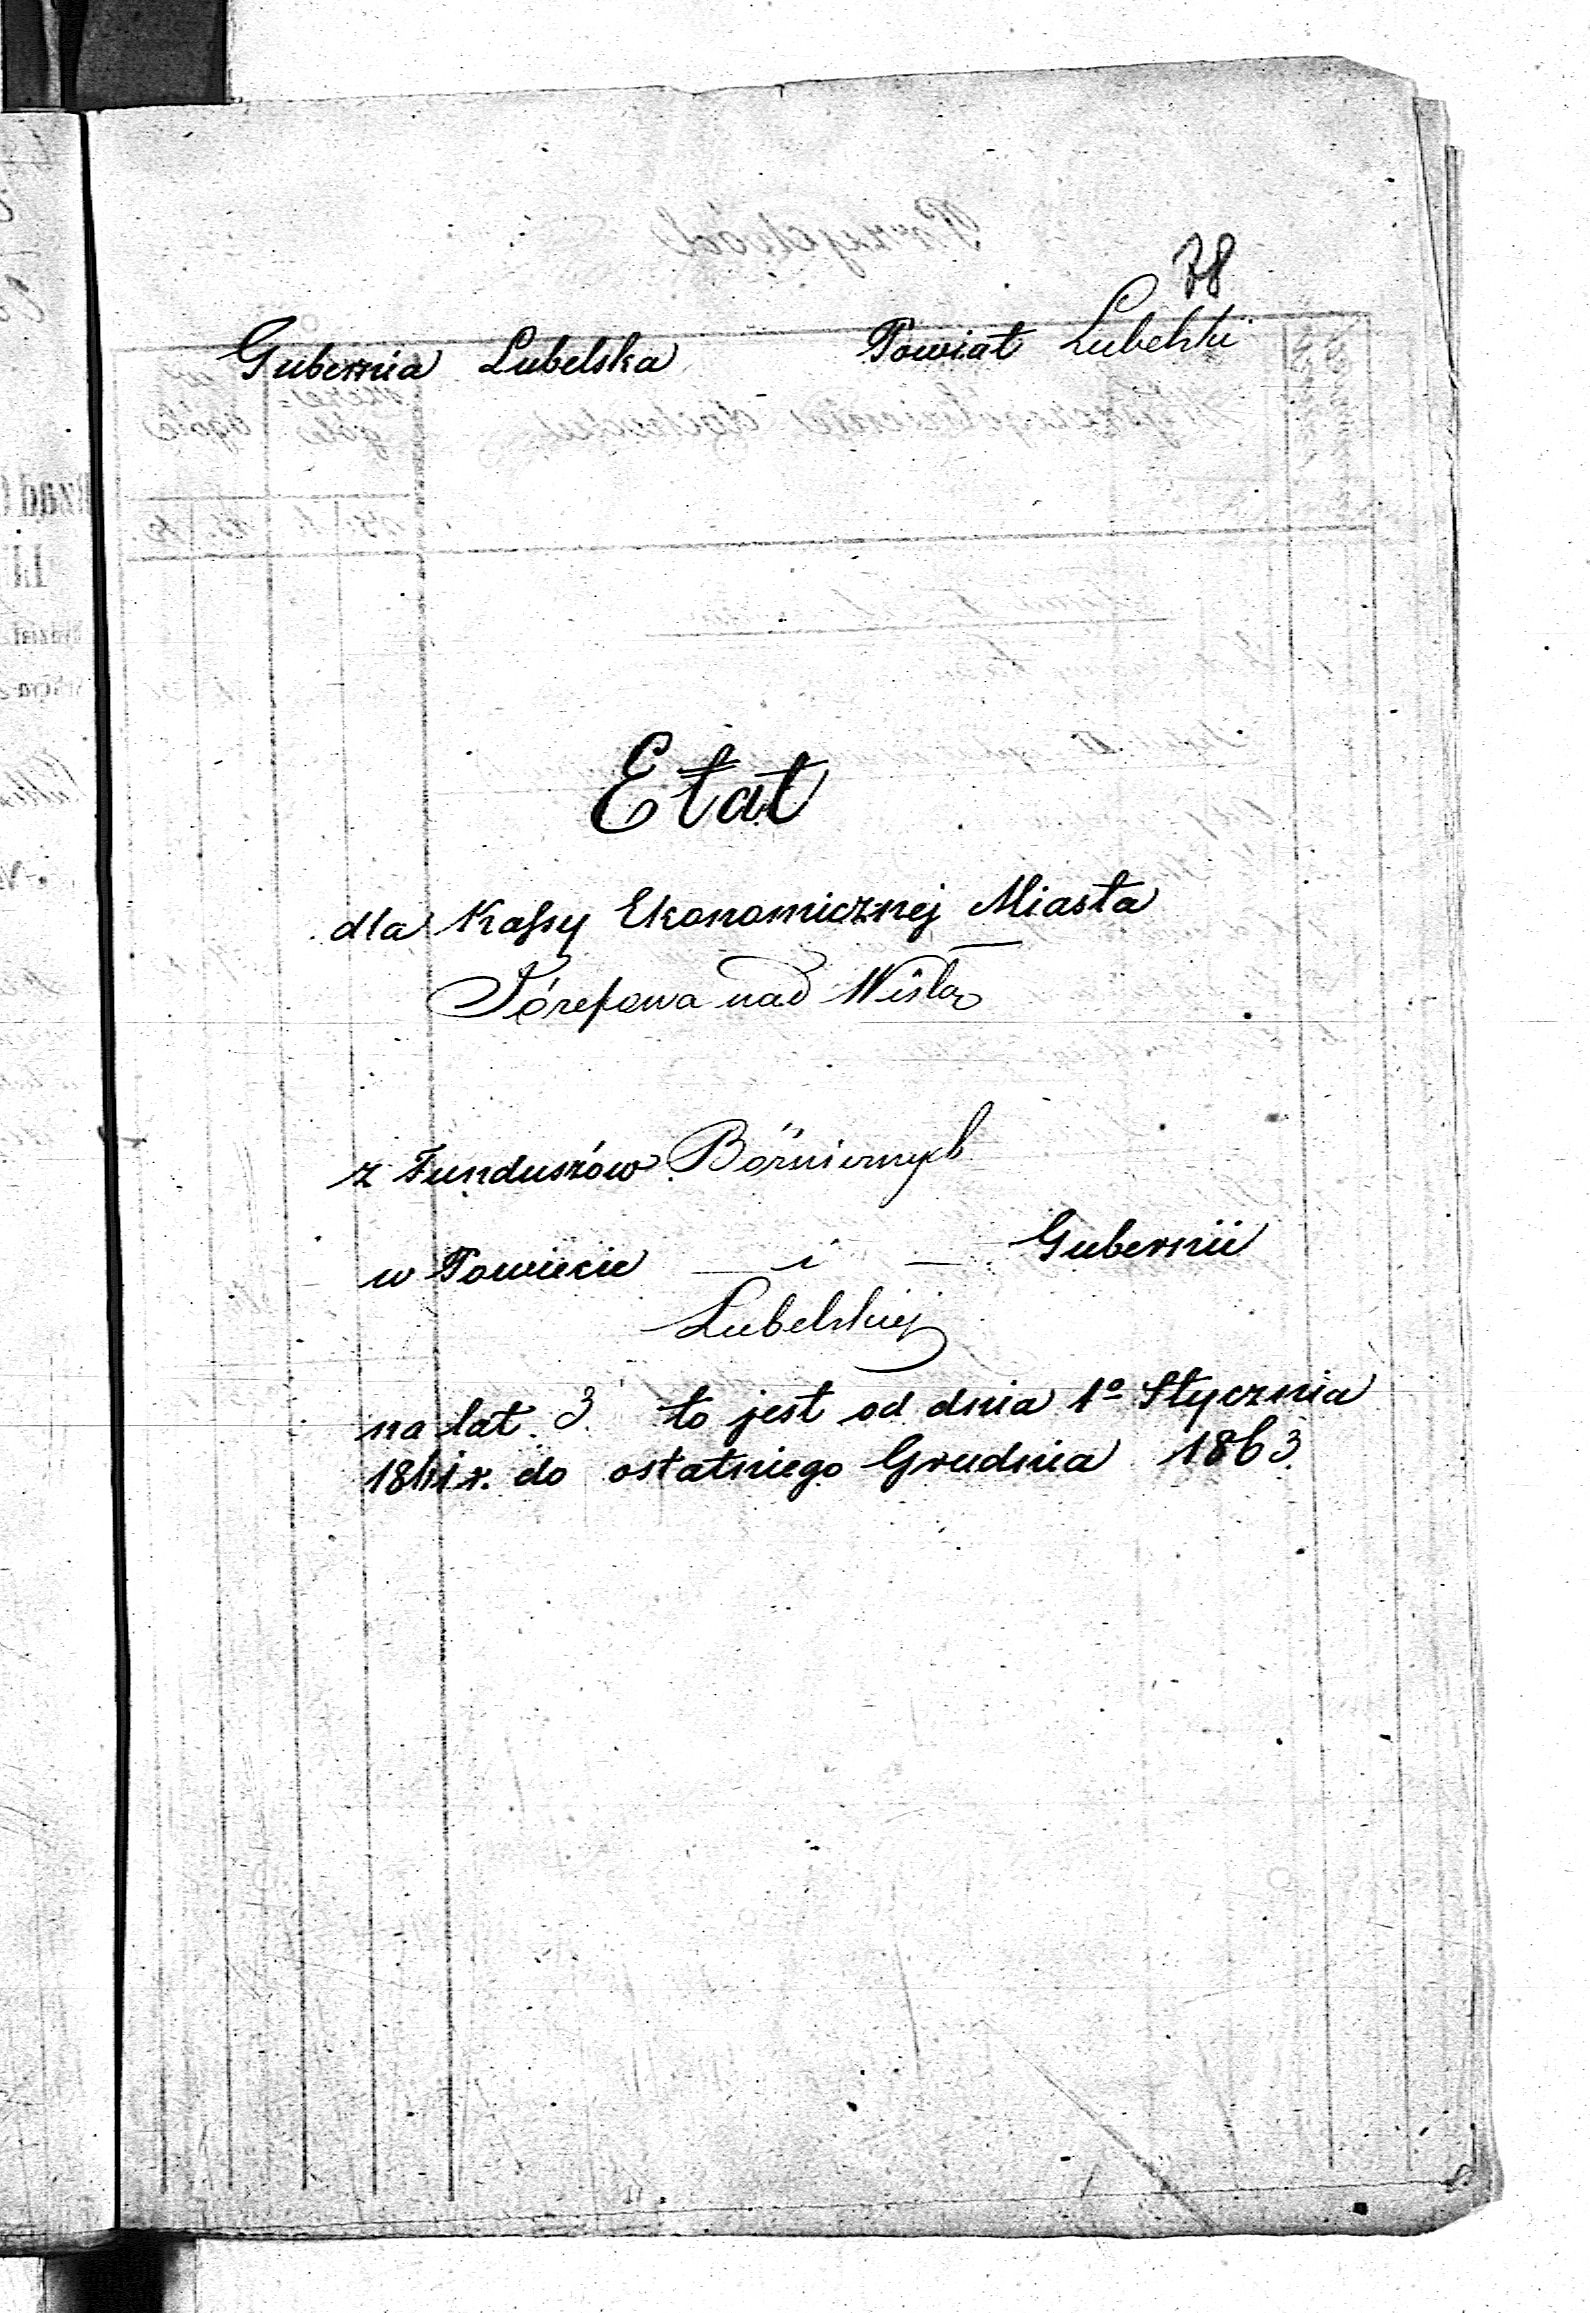 78
Gubernia Lubelska Powiat Lubelski
Etat
dla Kassy Ekonomicznej Miasta
Józefowa nad Wisłą
z Funduszów Bóżnicznych
w Powiecie — i — Gubernii
Lubelskiej
na lat 3 to jest od dnia 1º Stycznia
1861 r. do ostatniego Grudnia 1863